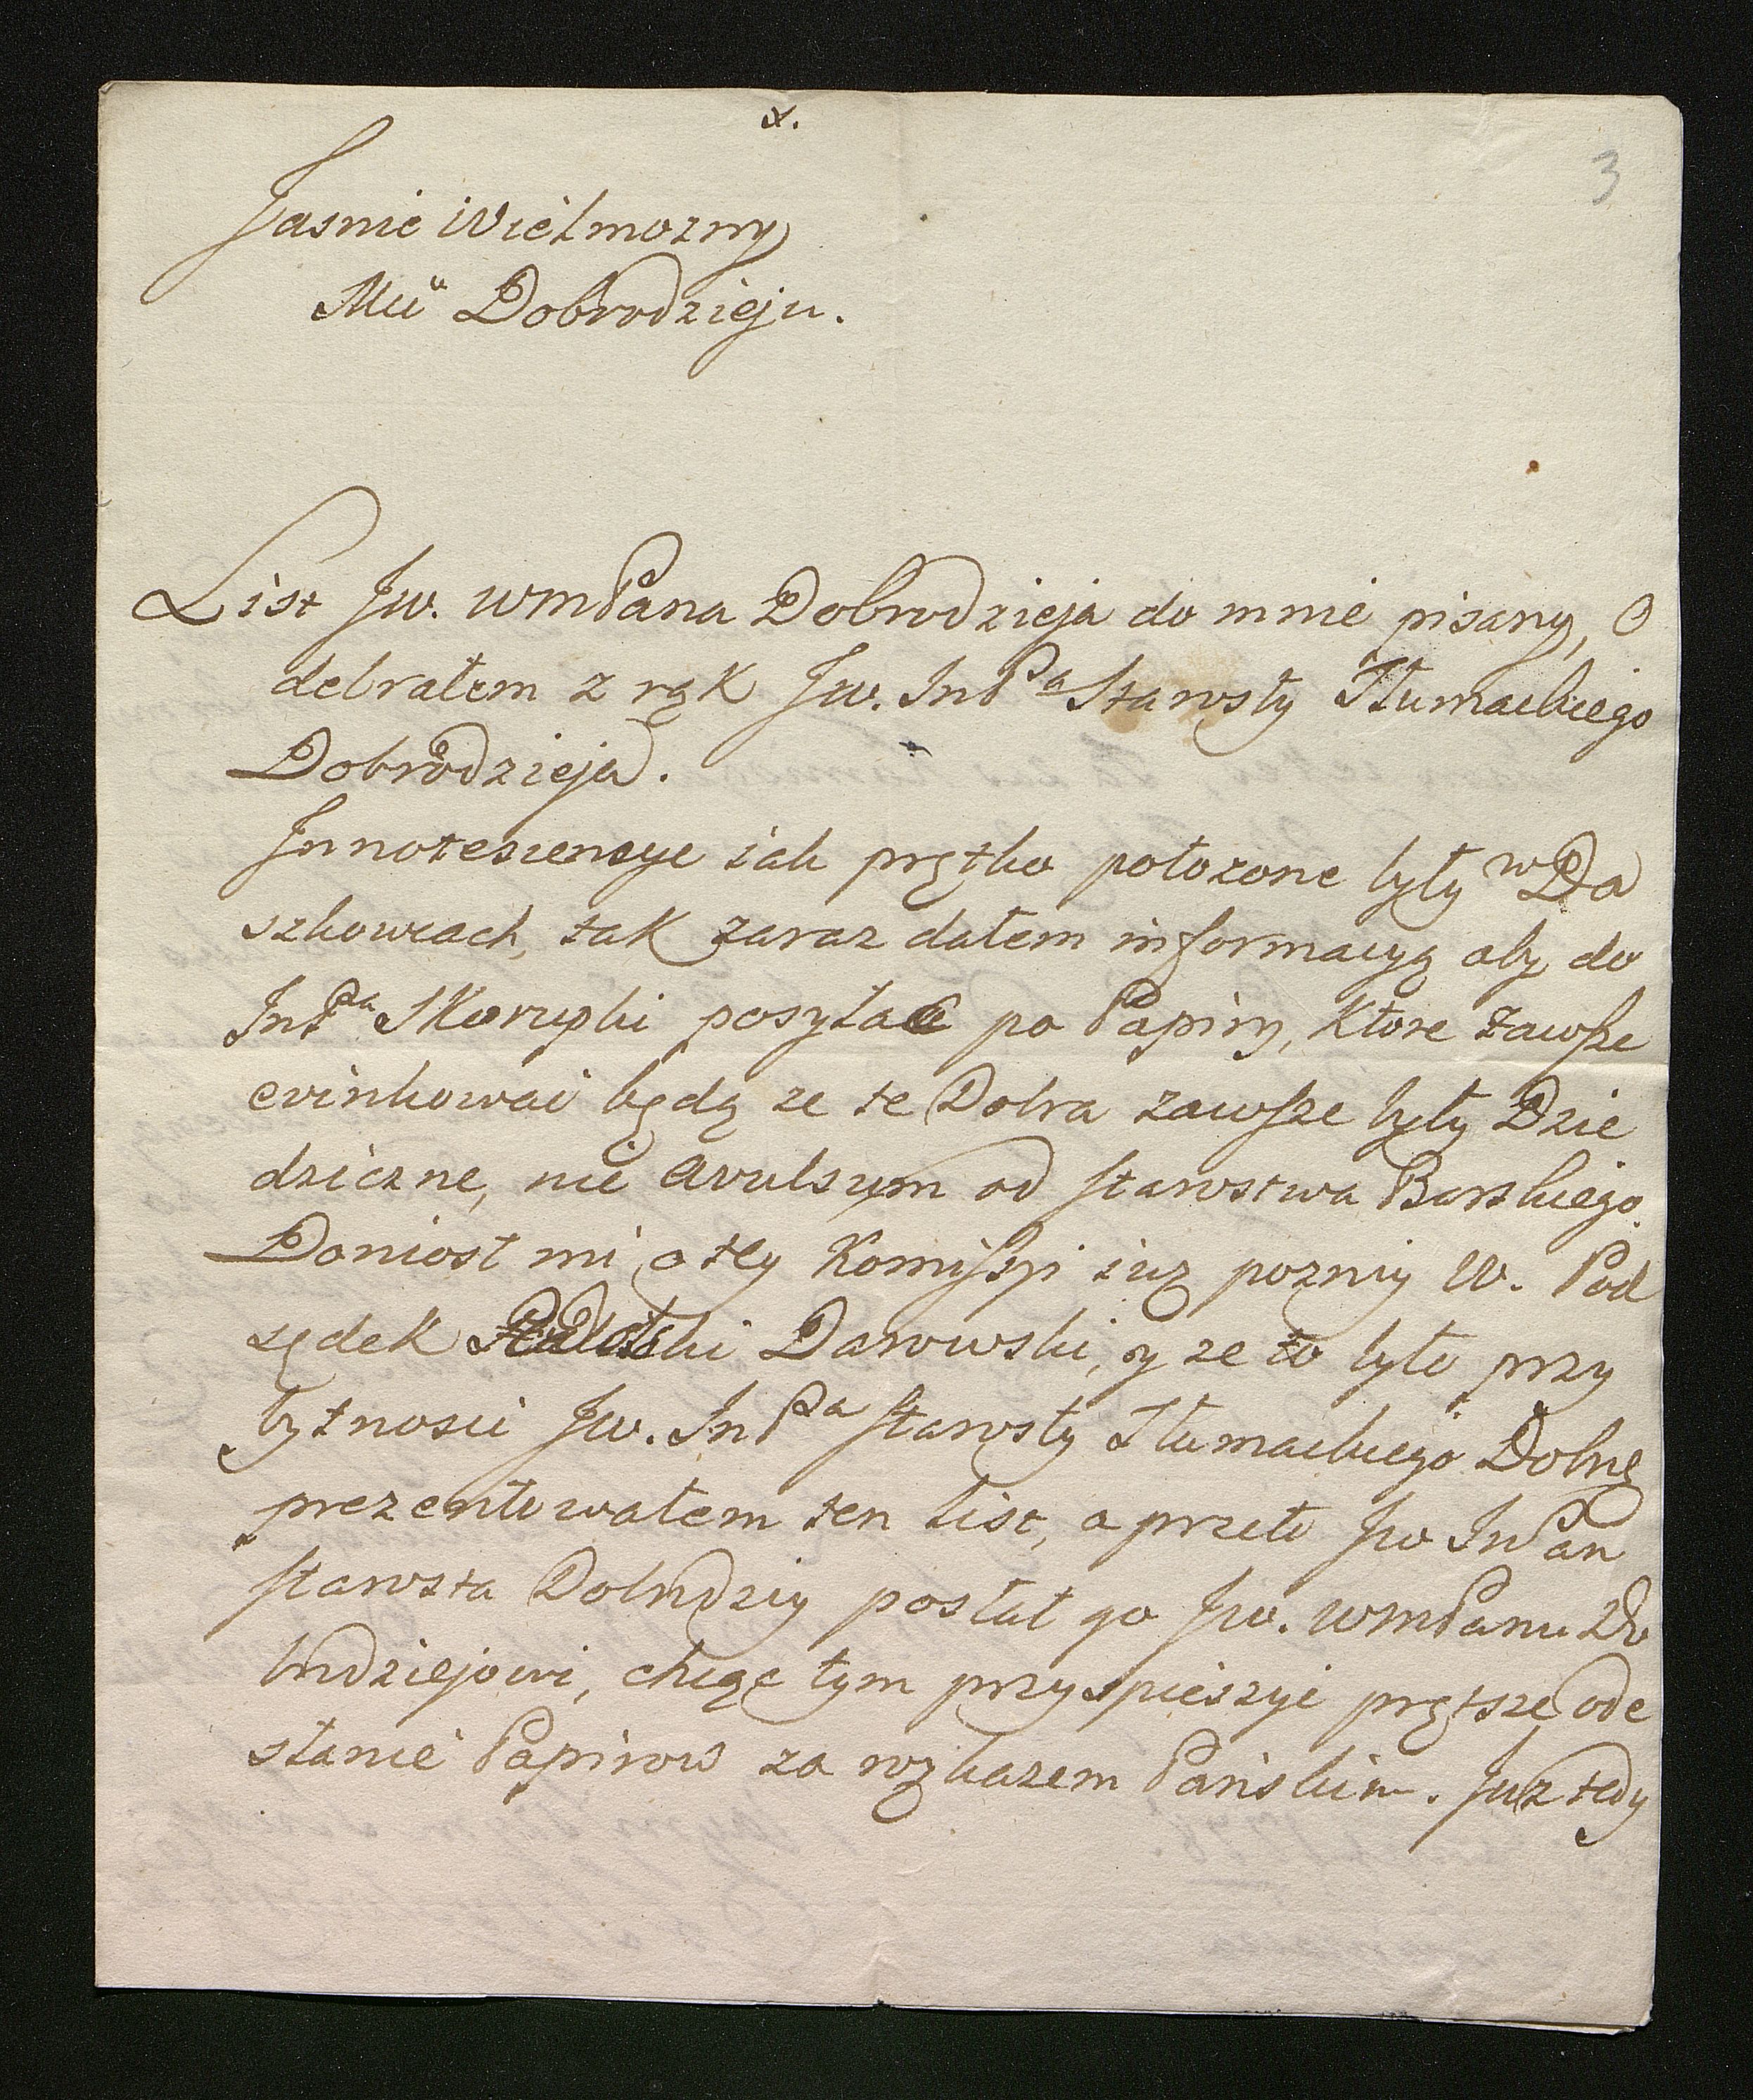 x.
3
Jasnie Wielmozny
Mci Dobrodzieju.
List Jw. WmPana Dobrodzieja do mnie pisany, O
debrałem z rąk Jw. ImPa Starosty Tłumackiego
Dobrodzieja.
Innotescencye iak prętko położone były w Da
szkowcach, tak zaraz dałem informacyą aby do
ImPa Skorupki posyłac po Papiry, które zawsze
ewinkowac będą ze te Dobra zawsze były Dzie
dziczne, nie avulsum od starostwa Barskiego.
Doniosł mi o tey Komissyi iuz pozniy W. Pod
sędek Darowski, y ze to było przy
bytnosci Jw. ImPa starosty Tłumackiego Dobrę
prezentowałem ten list, a przeto Jw ImPan
starosta Dobrdziey posłał go Jw. WmPanu Do
brdziejowi, chcąc tym przyspieszyć prętsze ode
słanie Papirow za rozkazem Pańskim. Juz tedy